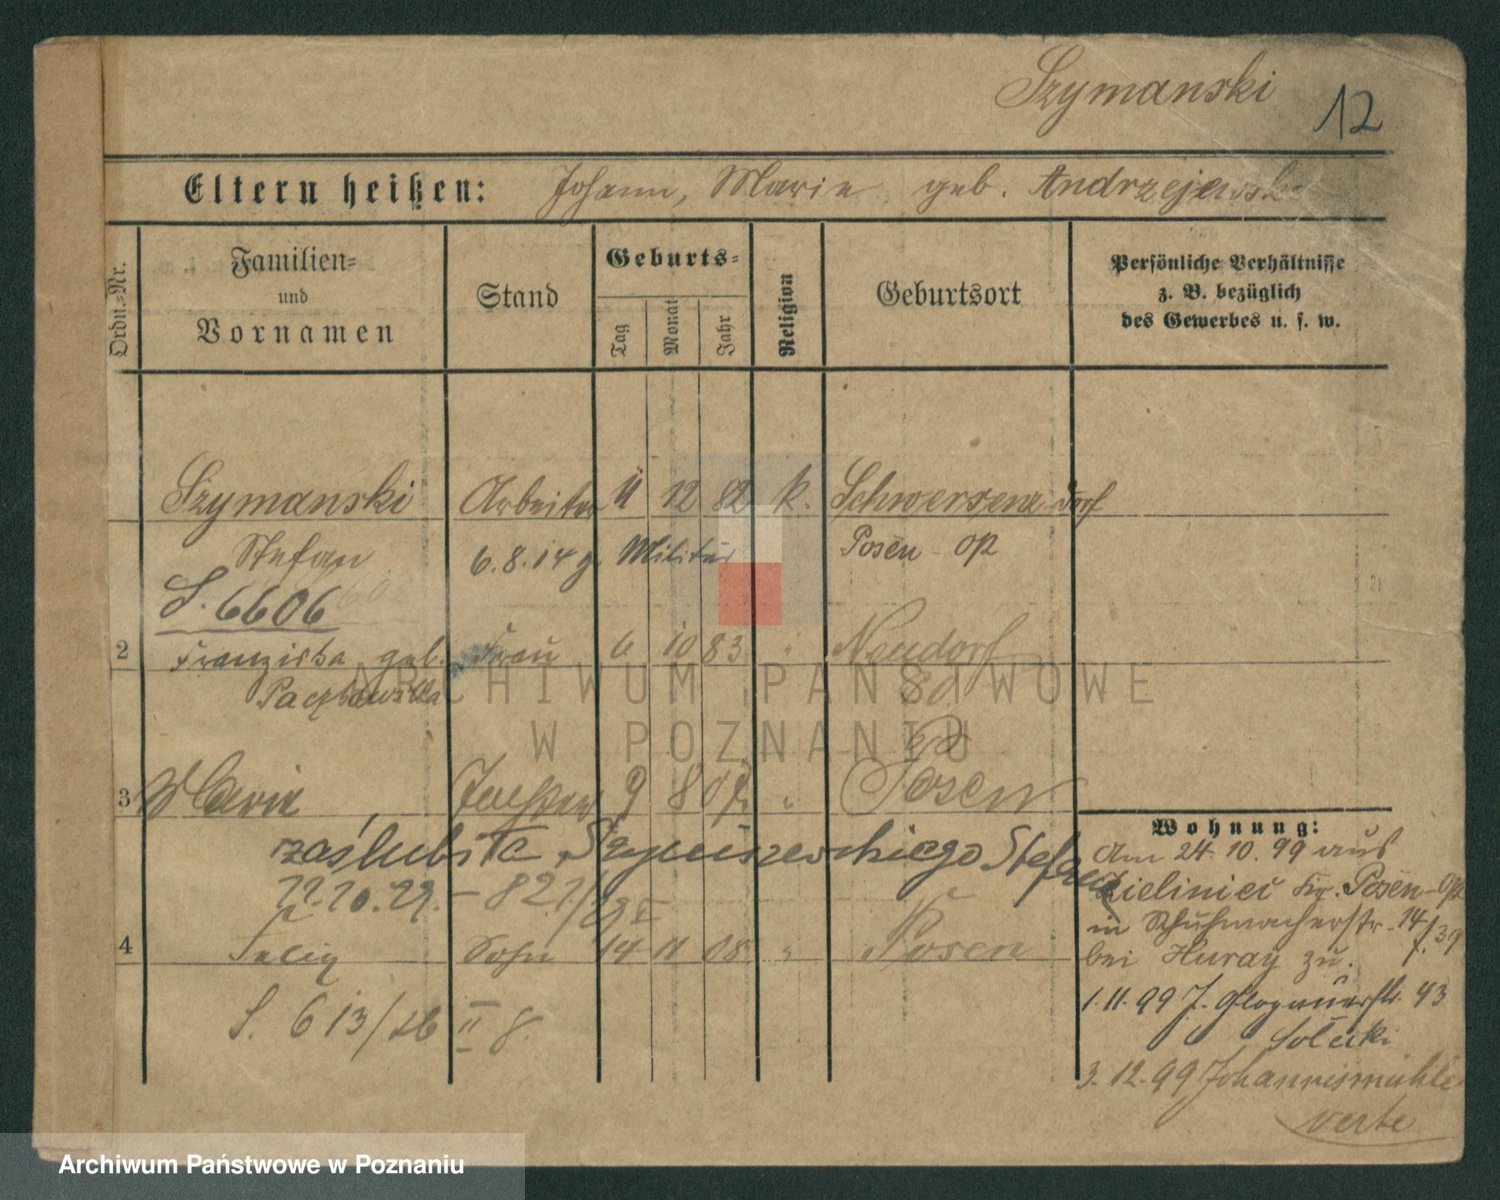 Szymanski
12
Eltern heißen: Johann, Marie geb. Andrzejewska
Ordn.-Nr.
Familien-
und
Vornamen
Stand
Geburts-
Tag
Monat
Jahr
Religion
Geburtsort
Persönliche Verhältnisse
z. B. bezüglich
des Gewerbes u. s. w.
Szymanski Arbeiter 12 82 k. Schwersenz Dorf
Stefan 6.8.14 z. Militär Posen - Ost
S. 6606
2 Franziska geb. Frau 6 10 83 " Neudorf
ARCHIWUM PAŃSTWOWE
W POZNANIU
3 Maria Tochter 9 8 07 " Posen
zaślubiła Szymiszewskiego Stefana
22.10.29. - 821/29
4 Felix Sohn 14 11 08 " Posen
S. 613/26 II 8
Wohnung:
Am 24.10.99 aus
Zieliniec Kr. Posen-Ost
in Schuhmacherstr. 14
bei Huray zu.
1.11.99 Glogauerstr. 93
Solecki
3.12.99 Johannismühle
verte
Archiwum Państwowe w Poznaniu